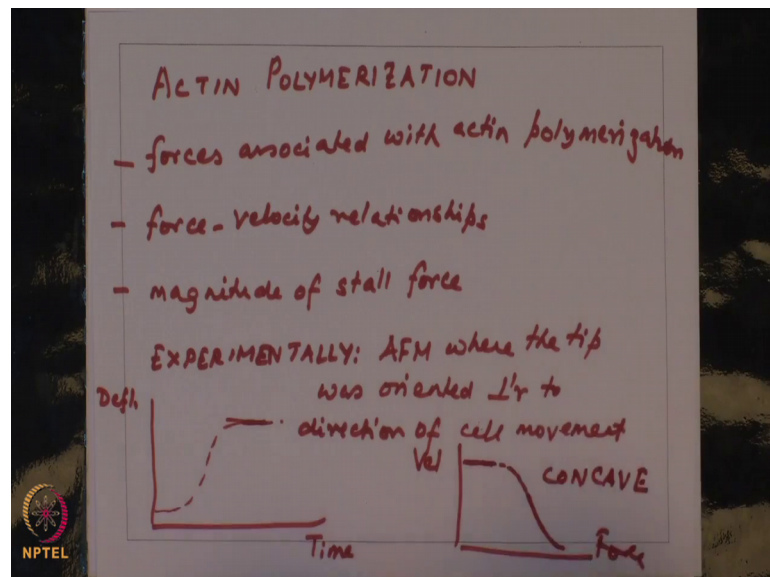 ACTIN POLYMERIZATION
- forces associated with actin polymerization
- force-velocity relationships
- magnitude of stall force
EXPERIMENTALLY: AFM where the tip
was oriented ⊥'r to
direction of cell movement
Defl.
Time
Vel
CONCAVE
Force
NPTEL